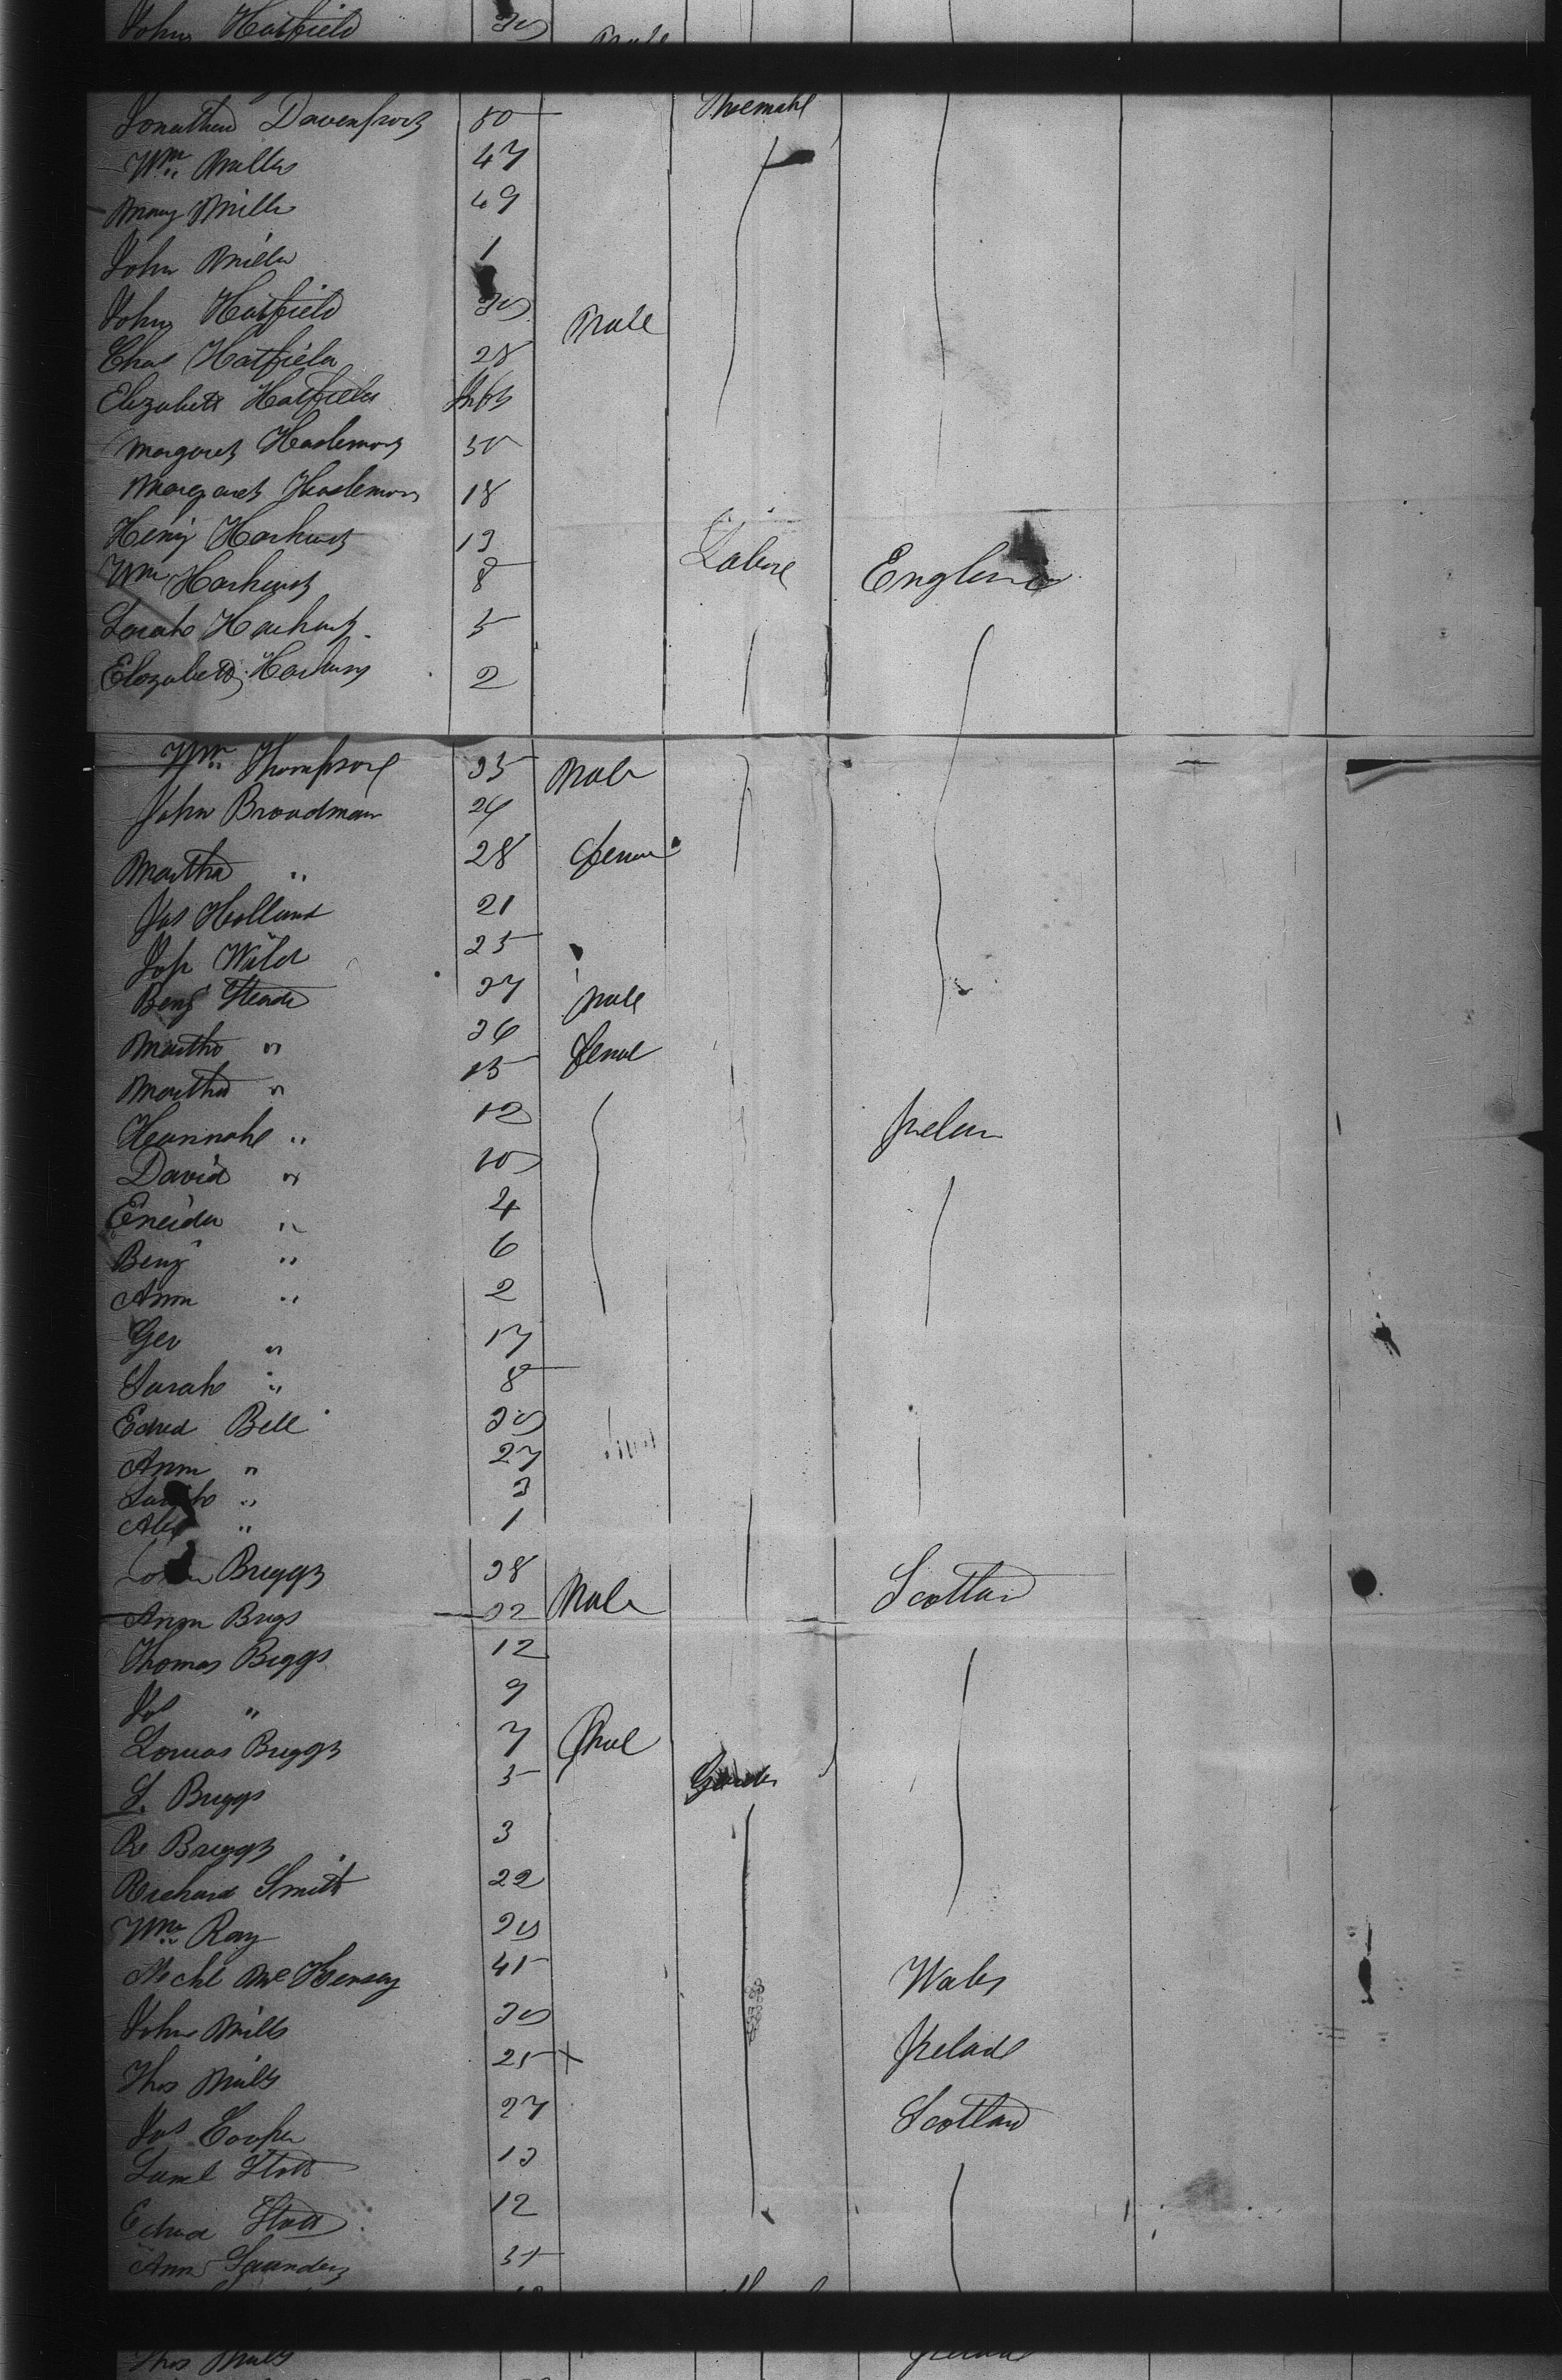 John Hatfield 30 Male
Jonathan Davenport 50
Wm Miller 47
Mary Mille 49
John Miller 1
John Hatfield 30 Male
Chas Hatfield 28
Elizabeth Hatfield
Margaret Haslemor 30
Margaret Haslemor 18
Heny Harhurst 13
Labore England
Wm Harhurst 8
Sarah Harhurst 5
Elizabeth Harhurst 2
Wm Thompson 35 Male
John Broadman 24
Martha " 28 Femae
Jas Holland 21
Jos Wild 25
Benj Steade 37 Male
Martha " 36 Femal
Martha " 15
Hannah " 12 Irelan
David " 10
Eneida " 4
Benj " 6
Ann " 2
Geo " 17
Sarah " 8
Edwd Bell 30
Ann " 27
Sarah " 3
Alex " 1
Briggs 38 Scotlan
Ann Brigs 32 Male
Thomas Biggs 12
Jos " 9
Louias Briggs 7
S. Briggs 5
Re Briggs 3
Richard Smith 22
Wm Ray 20
Michl McHensey 45 Wales
John Mills 30 Irelad
Thos Mills 25 x
Jas Cooper 27 Scotland
Saml Stott 13
Edwd Stott 12
Ann Saunders 35
Thos Mills